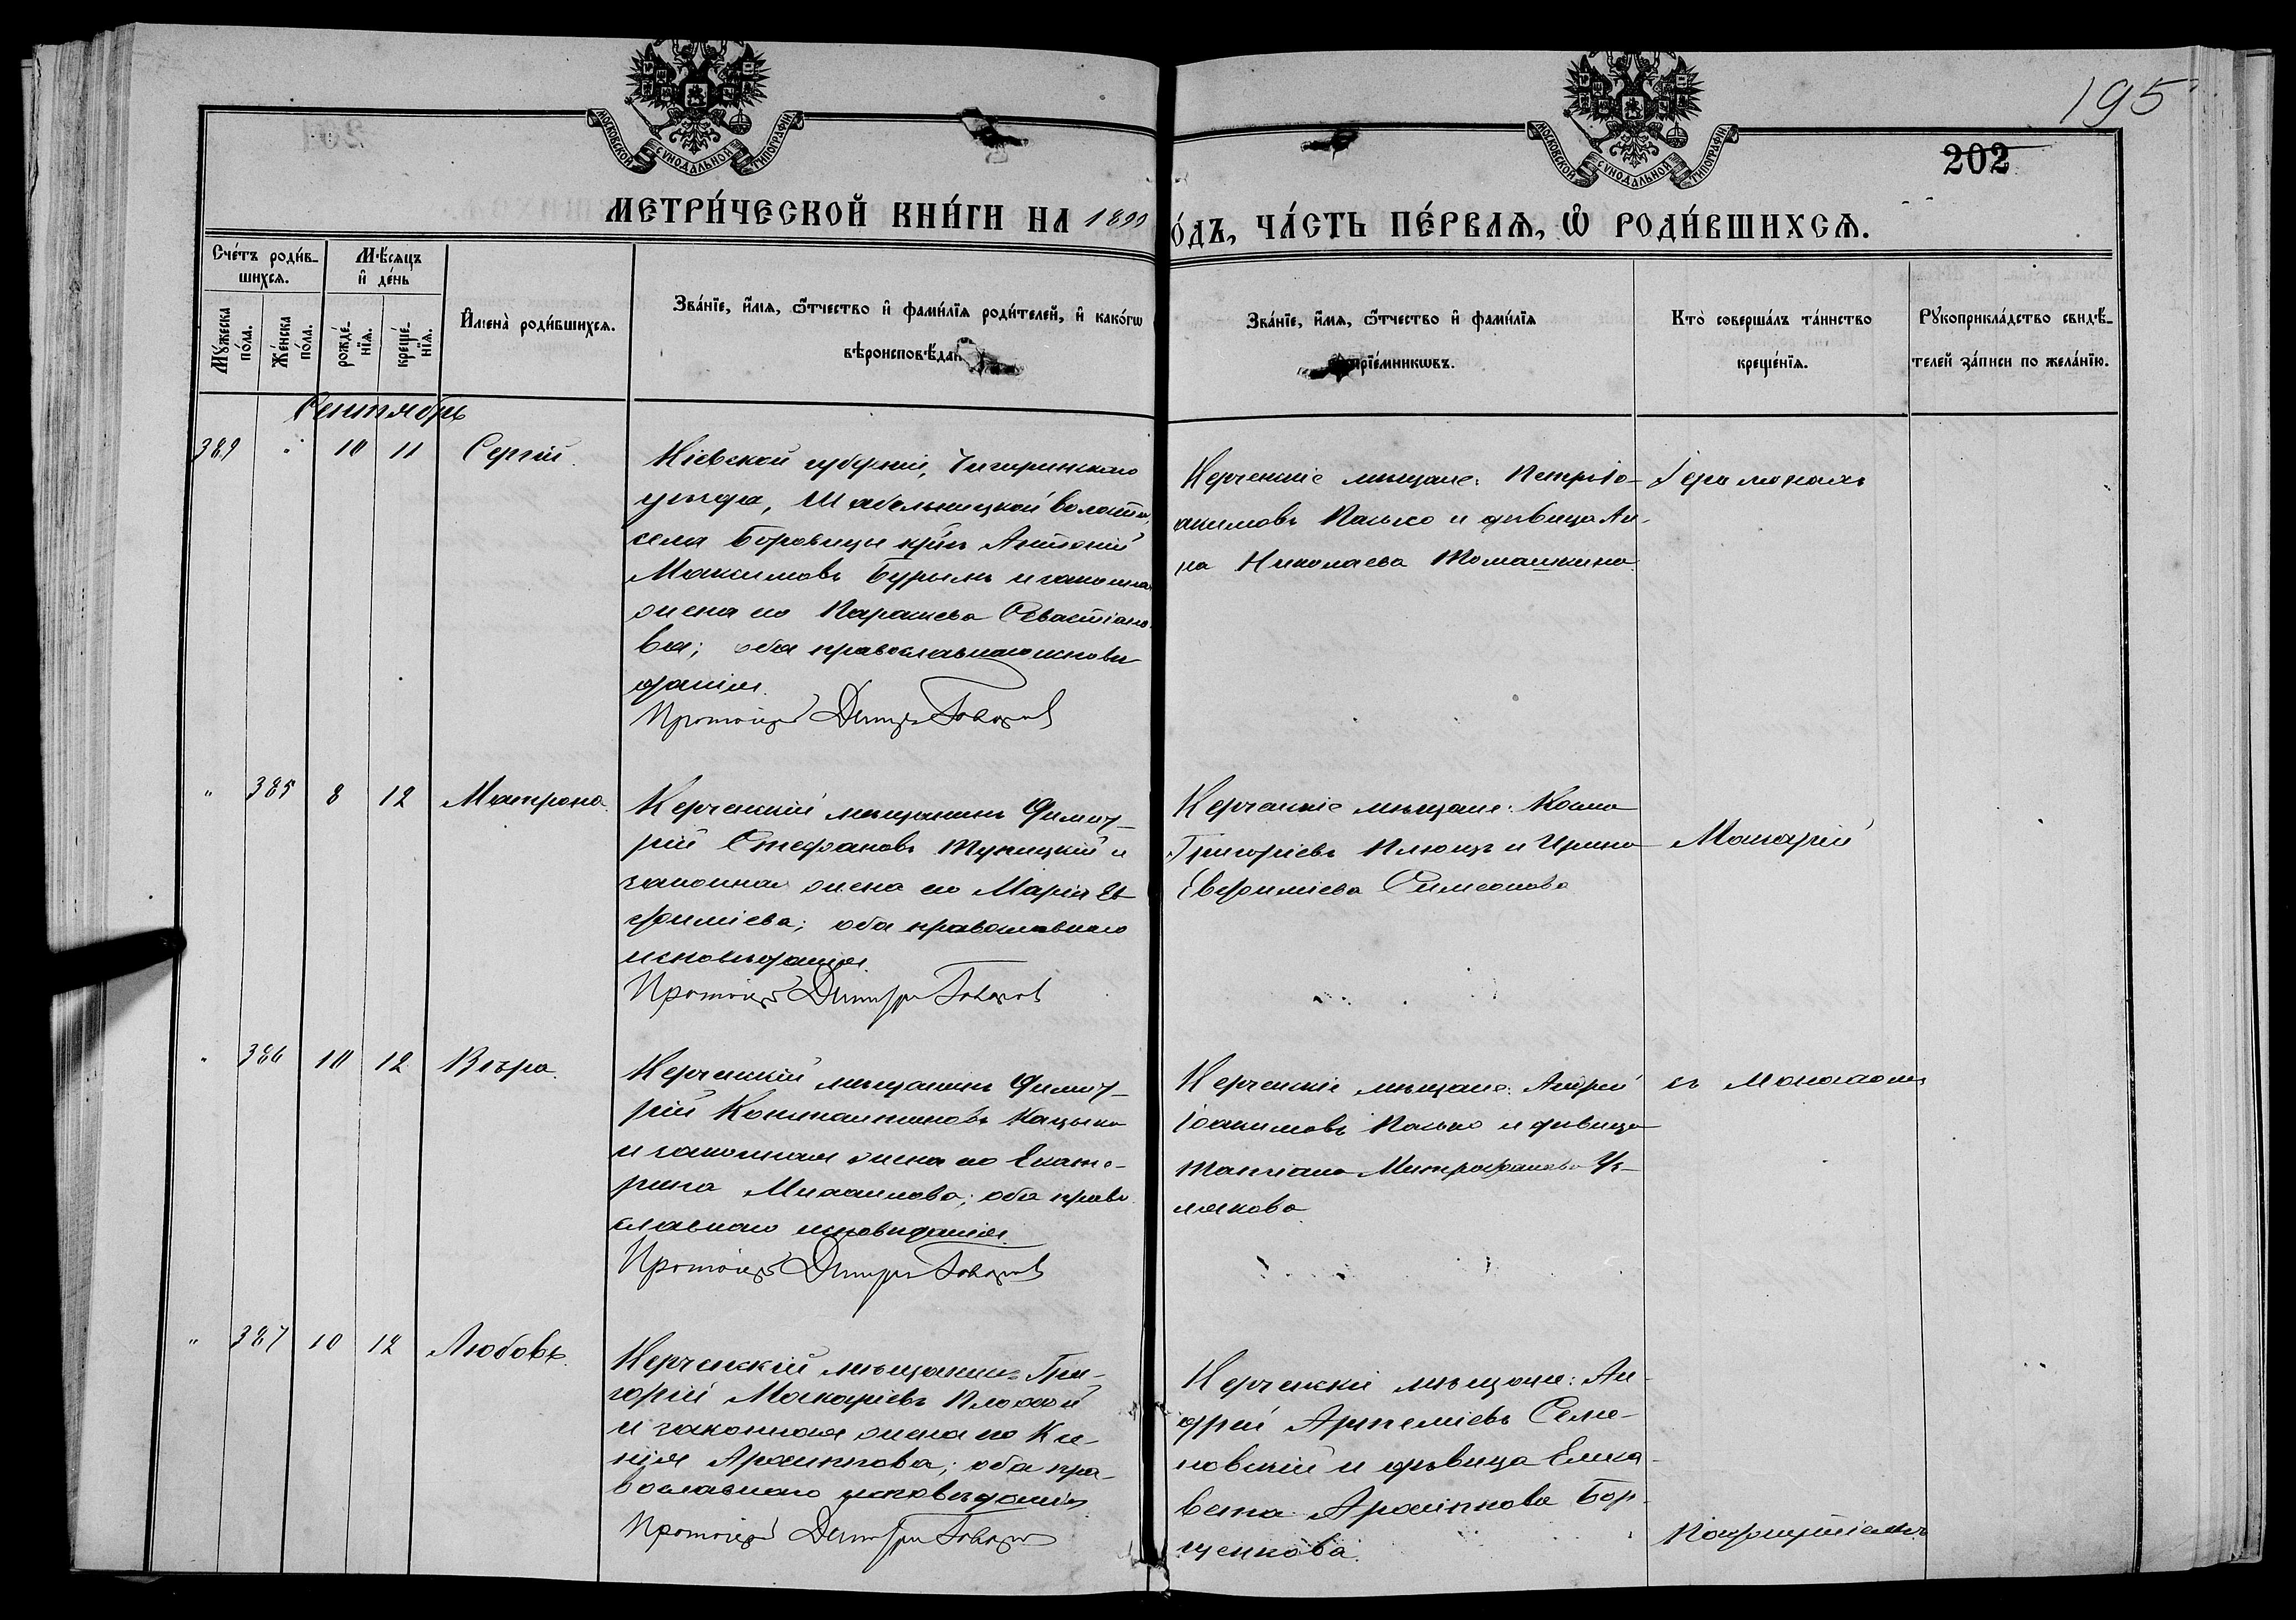 195
202
МОСКОВСКОЙ СѴНОДАЛЬНОЙ ТИПОГРАФІИ
МОСКОВСКОЙ СѴНОДАЛЬНОЙ ТИПОГРАФІИ
МЕТРИ́ЧЕСКОЙ КНИ́ГИ НА 1899
О́ДЪ, ЧА́СТЬ ПЕ́РВАѦ, Ѡ҆ РОДИ́ВШИХСѦ.
Сче́тъ роди́в-
шихсѧ.
Мѣ́сѧцъ
и҆ де́нь
Мꙋ́жеска
по́ла.
Же́нска
по́ла.
рожде́-
нїѧ.
креще́-
нїѧ.
И҆мена̀ роди́вшихсѧ.
Зва́нїе, и҆́мѧ, ѻ҆́тчество и҆ фами́лїѧ роди́телей, и҆ како́гѡ
вѣроисповѣ́дан
Зва́нїе, и҆́мѧ, ѻ҆́тчество и҆ фами́лїѧ
прїе́мникѡвъ.
Кто̀ соверша́лъ та́инство
креще́нїѧ.
Рꙋкоприкла́дство свидѣ́-
телей за́писи по жела́нїю.
Сентябрь
389 " 10 11 Сергій.
Кіевской губерніи, Чигиринскаго
уѣзда, Шабельницкой волости,
села Боровицы крⷭ҇нъ Антоній
Максимовъ Бурымъ и законная
жена его Параскева Севастіано
ва; оба православнаго исповѣ
данія.
Протоіерей Димитрій
Керченскіе мѣщане: Петръ Іо-
акимовъ Панько и дѣвица Ан-
на Николаева Томашкина
Іеромонахъ
" 385 8 12 Матрона.
Керченскій мѣщанинъ Димит-
рій Стефановъ Тупицкій и
законная жена его Марія Ев
фиміева; оба православнаго
исповѣданія.
Протоіерей Димитрій
Керченскіе мѣщане: Косма
Григоріевъ Плющъ и Ирина
Евфиміева Симеонова
Макарій
" 386 10 12 Вѣра.
Керченскій мѣщанинъ Димит-
рій Константиновъ Кацыка
и законная жена его Екате-
рина Михаилова; оба право
славнаго исповѣданія.
Протоіерей Димитрій
Керченскіе мѣщане: Андрей
Іоакимовъ Панько и дѣвица
Татіана Митрофанова
лякова
съ
" 387 10 12 Любовь.
Керченскій мѣщанинъ Гри-
горій Макаріевъ Плохой
и законная жена его Ксе-
нія Архиппова; оба пра-
вославнаго исповѣданія
Протоіерей Димитрій
Керченскіе мѣщане: Ан-
дрей Артеміевъ Семе-
новскій и дѣвица Елиса-
вета Архиппова Бор-
щенкова.